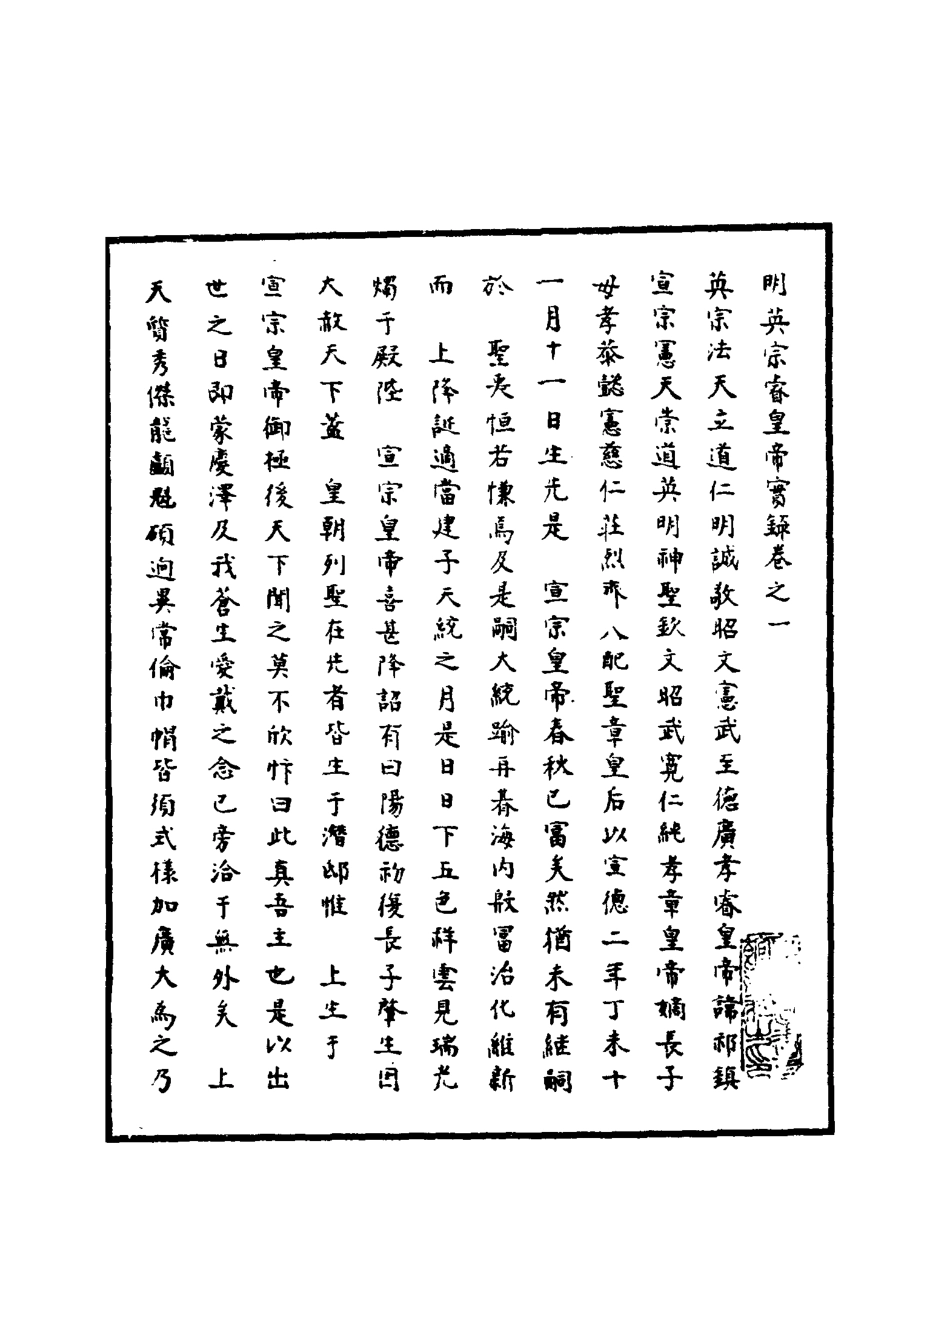 明英宗睿皇帝實錄卷之一
英宗法天立道仁明誠敬昭文憲武至德廣孝睿皇帝諱祁鎮
宣宗憲天崇道英明神聖欽文昭武寬仁純孝章皇帝嫡長子
母孝恭懿憲慈仁莊烈齊八配聖章皇后以宣德二年丁未十
一月十一日生先是　宣宗皇帝春秋已富矣然猶未有繼嗣
於　聖衷恒若慊焉及是嗣大統踰再朞海內殷冨治化維新
而　上降誕適當建子天統之月是日日下五色祥雲見瑞光
燭于殿陛　宣宗皇帝喜甚降詔有曰陽德初復長子肇生因
大赦天下蓋　皇朝列聖在先者皆生于潛邸惟　上生于
宣宗皇帝御極後天下聞之莫不欣忭曰此真吾主也是以出
世之日即蒙慶澤及我蒼生愛戴之念已旁洽于無外矣　上
天質秀傑龍顱魁碩逈異常倫巾幘皆須式樣加廣大為之乃